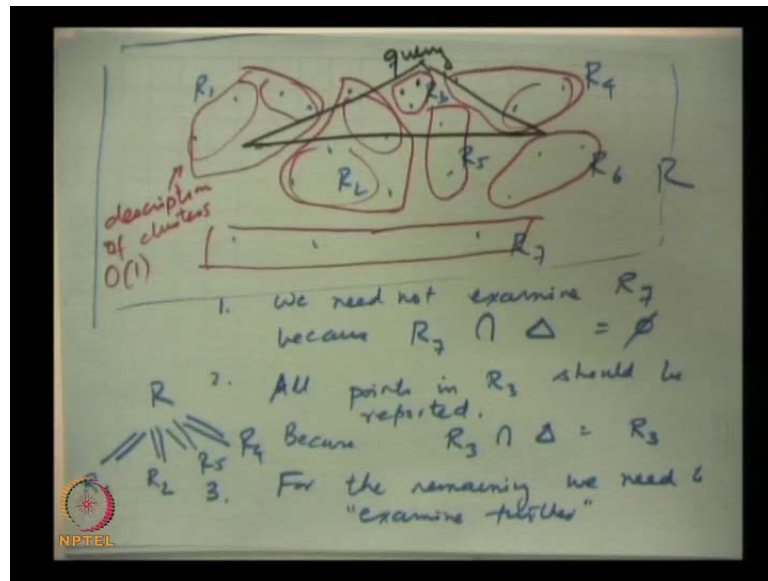 query
R1
R3
R4
R2
R5
R6
R
R7
description
of clusters
O(1)
1. We need not examine R7
because R7 ∩ Δ = ∅
2. All points in R3 should be
reported.
Because R3 ∩ Δ = R3
R
R2 R5 R4
3. For the remaining we need
"examine further"
NPTEL